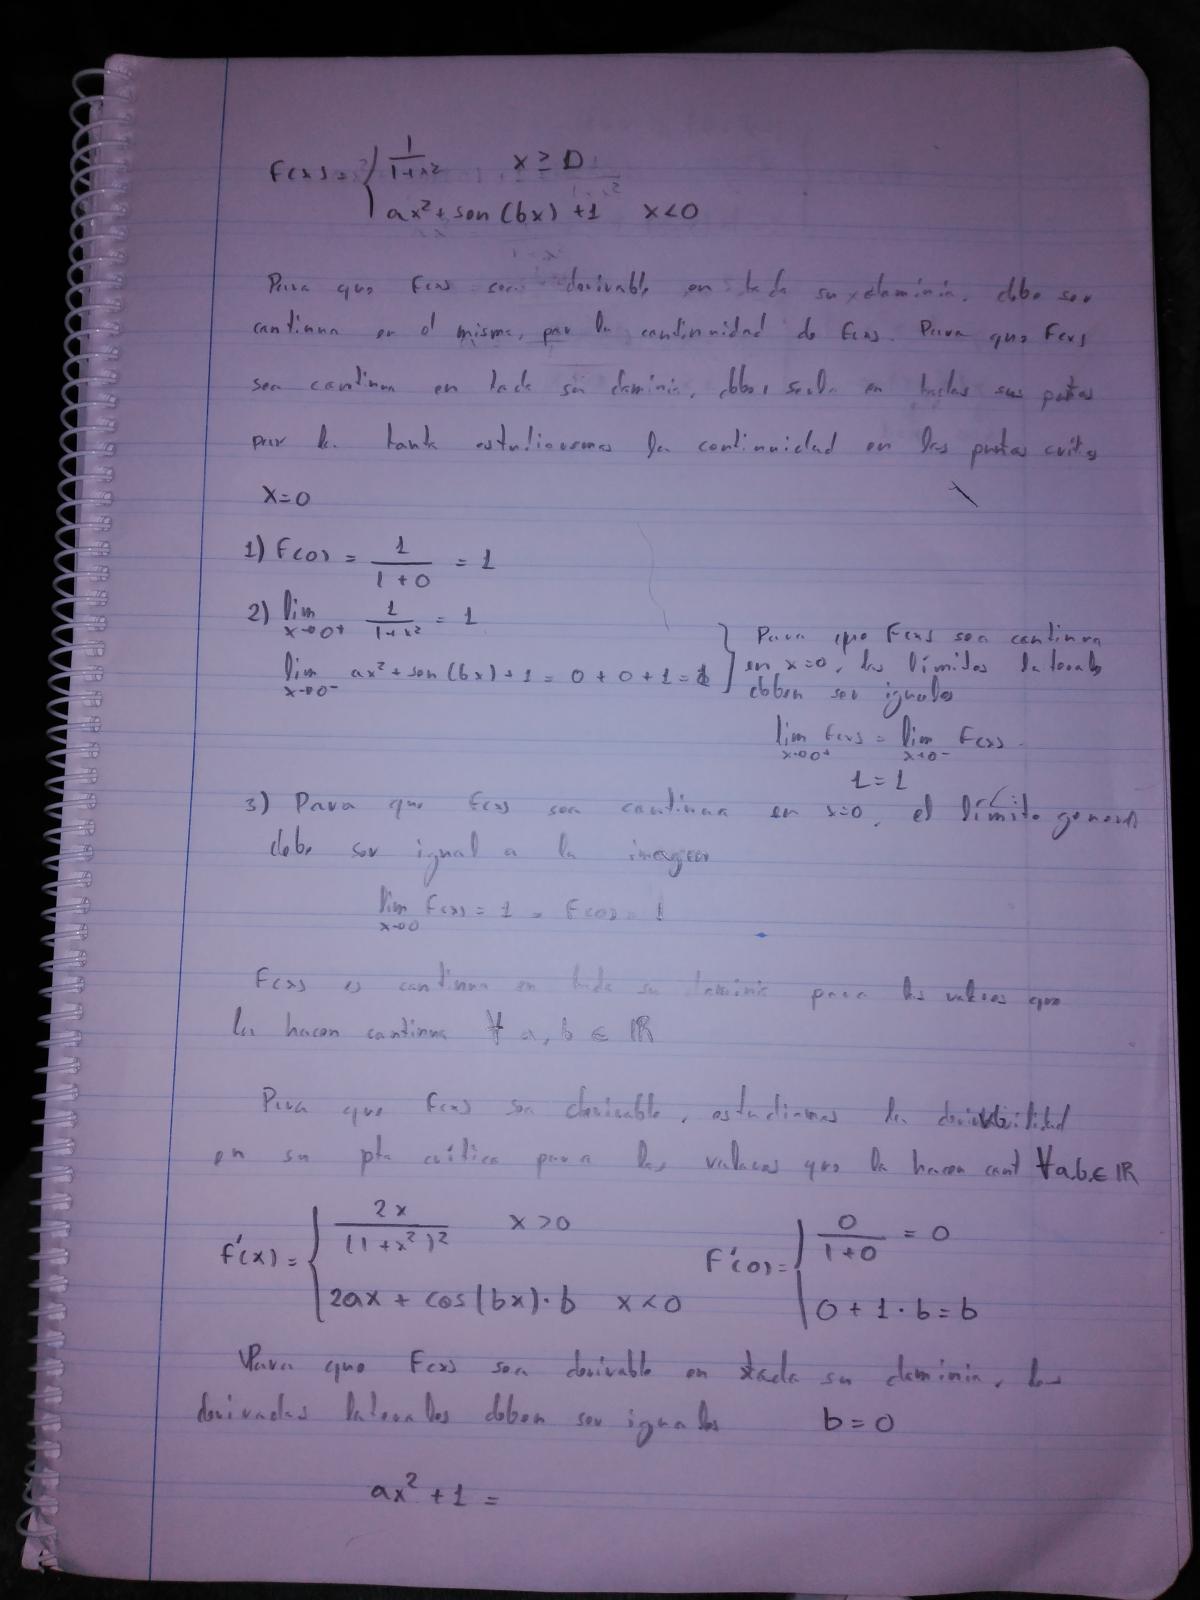 F(x) = { 1/(1+x²)    x ≥ 0
ax² + sen(bx) + 1    x < 0
Para que F(x) sea derivable en todo su dominio, debe ser
continua en el mismo, por la continuidad de F(x). Para que F(x)
sea continua en todo su dominio, debe serlo en todos sus puntos
por lo tanto estudiaremos la continuidad en los puntos
x=0
1) F(0) = 1/(1+0) = 1
2) lim x→0+ 1/(1+x²) = 1
lim x→0- ax² + sen(bx) + 1 = 0 + 0 + 1 = 1
Para que F(x) sea continua
en x=0, los límites laterales
deben ser iguales
lim x→0+ F(x) = lim x→0- F(x)
1 = 1
3) Para que F(x) sea continua en x=0, el límite general
debe ser igual a la imagen
lim x→0 F(x) = 1 = F(0) = 1
F(x) es continua en todo su dominio para los valores que
la hacen continua ∀ a, b ∈ ℝ
Para que F(x) sea derivable, estudiamos la derivabilidad
en su pto crítico para los valores que la hacen cont ∀a,b ∈ ℝ
F'(x) = { 2x/(1+x²)²    x > 0
2ax + cos(bx)·b    x < 0
F'(0) = { 0/(1+0) = 0
0 + 1·b = b
Para que F(x) sea derivable en todo su dominio, las
derivadas laterales deben ser iguales    b = 0
ax² + 1 =